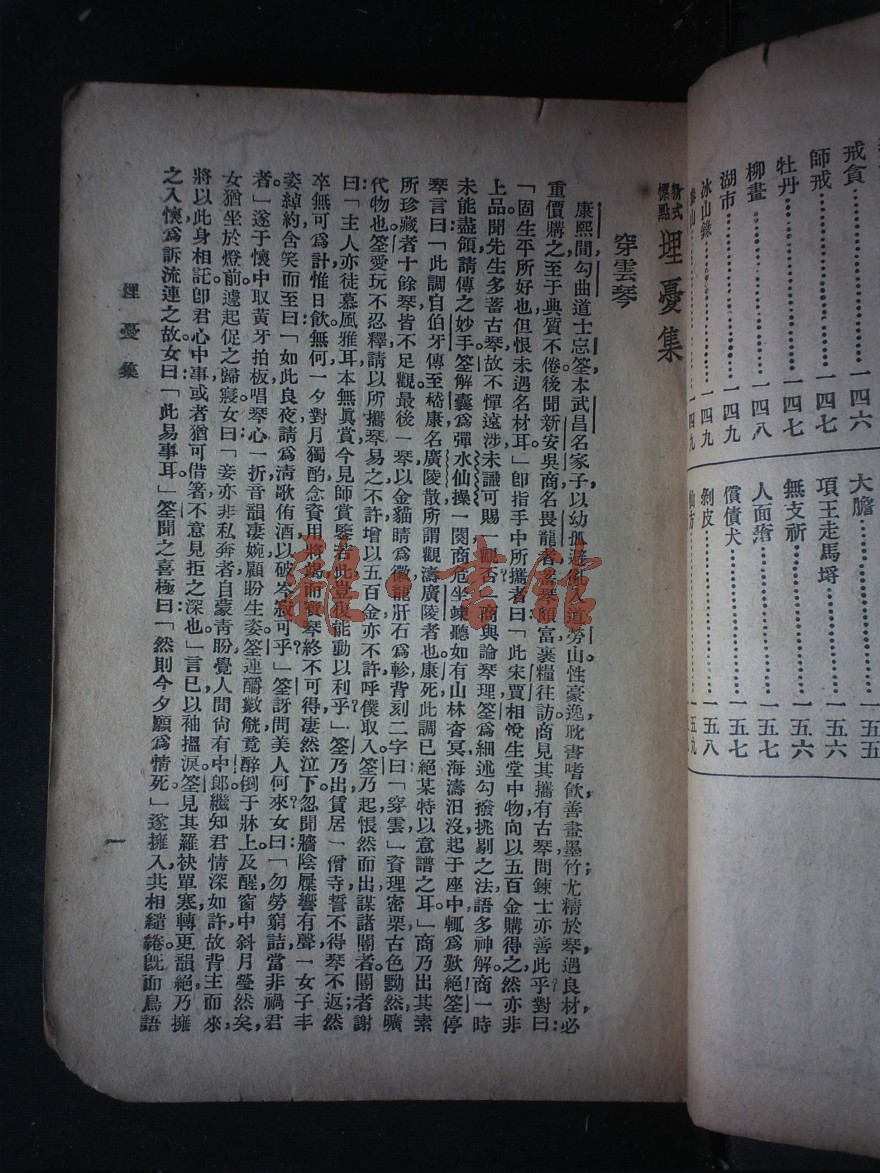 戒貪………………一四六
師戒………………一四七
牡丹………………一四七
柳畫………………一四八
湖市………………一四九
冰山錄………………一四九
大膽………………一五五
項王走馬埒………………一五六
無支祈………………一五六
人面瘡………………一五七
償債犬………………一五七
剝皮………………一五八
新式標點 埋憂集
穿雲琴
康熙間，勾曲道士忘筌，本武昌名家子，以幼孤避亂入道勞山。性豪逸，耽書嗜飲，善畫墨竹；尤精於琴，遇良材，必
重價購之，至于典質不倦。後聞新安吳商名畏龍者，蓄琴頗富，裹糧往訪。商見其攜有古琴，問鍊士亦善此乎？對曰：
「固生平所好也，但恨未遇名材耳」即指手中所攜者曰：「此宋賈相悅生堂中物，向以五百金購得之，然亦非
上品。聞先生多蓄古琴，故不憚遠涉，未識可賜一觀否？」商與論琴理，筌爲細述勾撥挑剔之法，語多神解，商一時
未能盡領，請傳之妙手。筌解囊爲彈水仙操一闋，商危坐竦聽，如有山林杳冥，海濤汨沒，起于座中，輒爲歎絕。筌停
琴言曰：「此調自伯牙傳至嵇康，名廣陵散，所謂觀濤廣陵者也。康死，此調已絕，某特以意譜之耳」商乃出其素
所珍藏者十餘琴，皆不足觀。最後一琴，以金貓睛爲徽，龍肝石爲軫，背刻二字曰：「穿雲」，資理密栗，古色黝然，曠
代物也。筌愛玩不忍釋，請以所攜琴易之，不許，增以五百金，亦不許，呼僕取入。筌乃起悵然而出，謀諸閽者。閽者謝
曰：「主人亦徒慕風雅耳，本無眞賞，今見師賞鑒若此，豈復能動以利乎？」筌乃出賃居一僧寺，誓不得琴不返；然
卒無可爲計，惟日飲無何，一夕對月獨酌，念資用將竭，而寶琴終不可得，凄然泣下。忽聞牆陰屧響有聲，一女子丰
姿綽約，含笑而至曰：「如此良夜，請爲清歌侑酒，以破岑寂可乎？」筌訝問美人何來？女曰：「勿勞窮詰，當非禍君
者」遂于懷中取黃牙拍板，唱琴心一折，音韻凄婉，顧盼生姿。筌連釂數觥，竟醉倒于牀上。及醒，窗中斜月瑩然矣，
女猶坐於燈前，遽起促之歸寢。女曰：「妾亦非私奔者，自蒙青盼，覺人間尙有中郎，繼知君情深如許，故背主而來，
將以此身相託。卽君心中事，或者猶可借箸，不意見拒之深也」言已，以袖搵淚。筌見其羅袂單寒，轉更韻絕，乃擁
之入懷，爲訴流連之故。女曰：「此易事耳」筌聞之喜極曰：「然則今夕願爲情死」遂擁入，共相繾綣。旣而鳥語
埋憂集
一
雜·書館